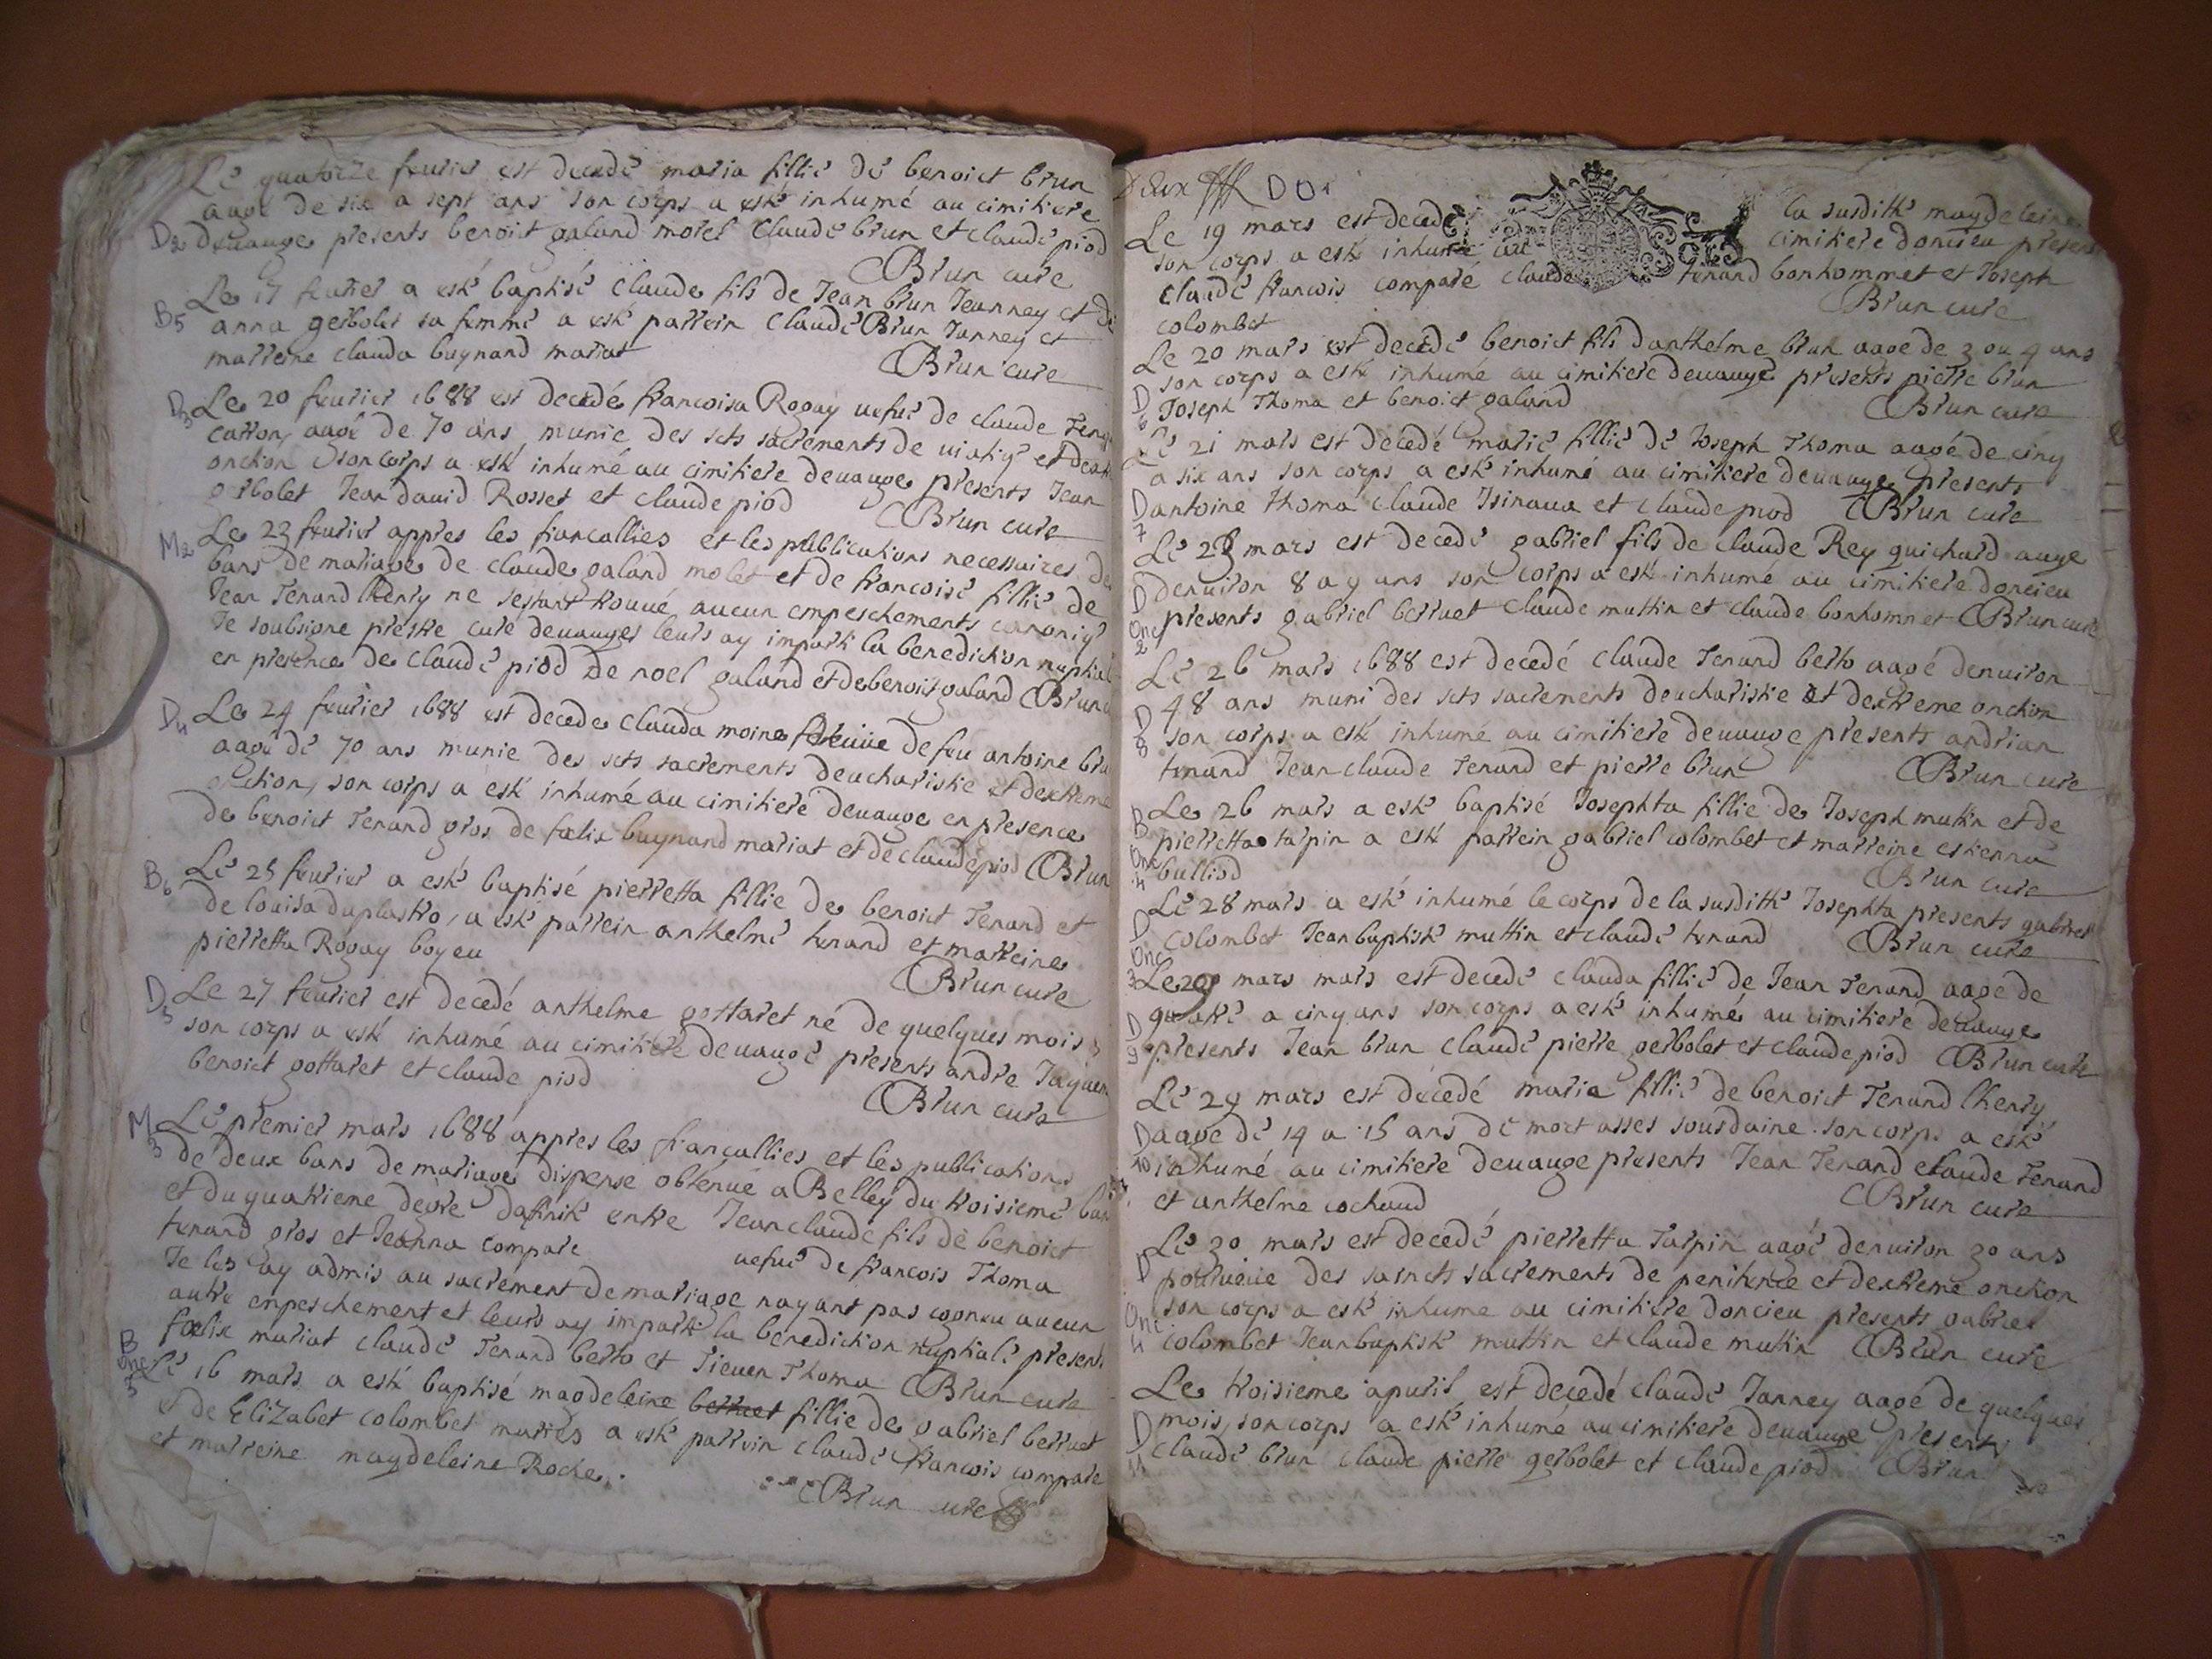 Le quatorze feurier est decedé maria fillie de benoict brun
aagé de six a sept ans son corps a esté inhumé au cimitiere
D2 deuauge presents benoict galand molet Claude brun et claude piod
Brun cure
Le 17 feurier a esté baptisé Claude fils de Jean brun Jeanney et de
B5 anna gerbolet sa femme a esté parrein Claude Brun Janney et
marreine clauda bugnand mariat
Brun cure
D3 Le 20 feurier 1688 est decedé francoisa Rogay uefue de claude
carron, aagé de 70 ans munie des scts sacrements de uiatiq et
onction son corps a esté inhumé au cimitiere deuauge presents Jean
gerbolet Jean dauid Rosset et claude piod Brun cure
M2 Le 23 feurier appres les fiancallies et les publications necessaires de
bans de mariage de claude galand molet et de francoise fillie de
Jean Tenard lhenry ne sestant trouué aucun empeschements canoniq
Je soubsigne prestre curé deuauges leurs ay imparti la benediction nuptial
en presence de claude piod de noel galand et de benoist galand Brun
D4 Le 24 feurier 1688 est decede clauda moine ueuue de feu antoine bru
aagé de 70 ans munie des scts sacrements deucharistie et dextreme
onction, son corps a esté inhumé au cimitiere deuauge en presence
de benoict Tenard gros de fœlix bugnand mariat et de claude piod Brun
B6 Le 25 feurier a esté baptisé pierretta fillie de benoict Tenard et
de louisa duplastro, a esté parrein anthelme tenard et marreine
pierretta Rogay boyeu
Brun cure
D5 Le 27 feurier est decedé anthelme gottaret né de quelques mois
son corps a esté inhumé au cimitiere deuauge presents andre Jaquem
benoict gottaret et claude piod
Brun cure
M3 Le premier mars 1688 appres les fiancallies et les publications
de deux bans de mariage dispense obtenue a Belley du troisieme ban
et du quatrieme degre dafinité entre Jean claude fils de benoict
tenard gros et Jeanna compare uefue de francois Thoma
Je les ay admis au sacrement de mariage nayant pas cogneu aucun
autre enpeschement et leurs ay imparti la benediction nuptiale presents
fœlix mariat claude Tenard berto et Tieuen Thoma Brun cure
B Onc 3 Le 16 mars a esté baptisé magdeleine berruet fillie de gabriel berruet
et de Elizabet colombet mariés a esté parrein claude francois compare
et marreine magdeleine Roche
Brun cure
Deux DO1
Le 19 mars est decedé la susditte magdeleine
son corps a esté inhumé au cimitiere doncieu presens
claude francois comparé claude tenard bonhommet et Joseph
colombet Brun cure
Le 20 mars est decedé benoict fils danthelme brun aagé de 3 ou 4 ans
son corps a esté inhumé au cimitiere deuauge presents pierre brun
D6 Joseph Thoma et benoict galand Brun cure
Le 21 mars est decedé marie fillie de Joseph Thoma aagé de cinq
a six ans son corps a esté inhumé au cimitiere deuauge presents
D7 antoine thoma claude Isinaua et claude piod Brun cure
Le mars est decedé gabriel fils de claude Rey guichard aagé
D denuiron 8 a 9 ans son corps a esté inhumé au cimitiere doncieu
Onc 2 presents gabriel berruet claude muttin et claude bonhomet Brun cure
Le 26 mars 1688 est decedé claude Tenard berto aagé denuiron
D8 48 ans muni des scts sacrements deucharistie et dextreme onction
son corps a esté inhumé au cimitiere deuauge presents andrian
tenard Jean claude Tenard et pierre brun Brun cure
B Le 26 mars a esté baptisé Josephta fillie de Joseph muttin et de
Onc pierretta tarpin a esté parrein gabriel colombet et marreine estienna
4 bulliod Brun cure
D Le 28 mars a esté inhumé le corps de la susditte Josephta presents gabriel
Onc colombet Jean baptiste muttin et claude tenard Brun cure
3 Le 29 mars mars est decedé clauda fillie de Jean Tenard aagé de
D quatre a cinq ans son corps a esté inhumé au cimitiere deuauge
9 presents Jean brun claude pierre gerbolet et claude piod Brun cure
Le 29 mars est decedé maria fillie de benoict Tenard lhenry
D aagé de 14 a 15 ans de mort asses sousdaine son corps a esté
10 inhumé au cimitiere deuauge presents Jean Tenard claude Tenard
et anthelme cochaud Brun cure
Le 30 mars est decedé pierretta Tarpin aagé denuiron 30 ans
D pourueue des saincts sacrements de penitence et dextreme onction
Onc son corps a esté inhumé au cimitiere doncieu presents gabriel
4 colombet Jean baptiste muttin et claude muttin Brun cure
Le troisieme apuril est decedé claude Janney aagé de quelques
D mois, son corps a esté inhumé au cimitiere deuauge presents
11 claude brun claude pierre gerbolet et claude piod Brun